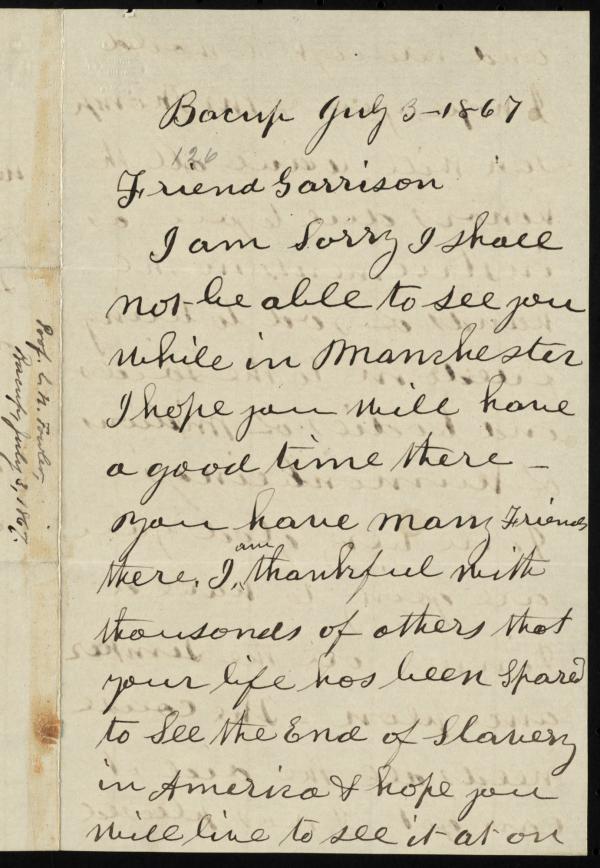 Bacup July 3-1867
126
Friend Garrison
I am Sorry I shall
not be able to see you
while in Manchester
I hope you will have
a good time there -
you have many Friends
there, I am thankful with
thousands of others that
your life has been Spared
to See the End of Slavery
in America & hope you
will live to see it at on
Prof. L. N. Fowler,
Bacup, July 3, 1867.